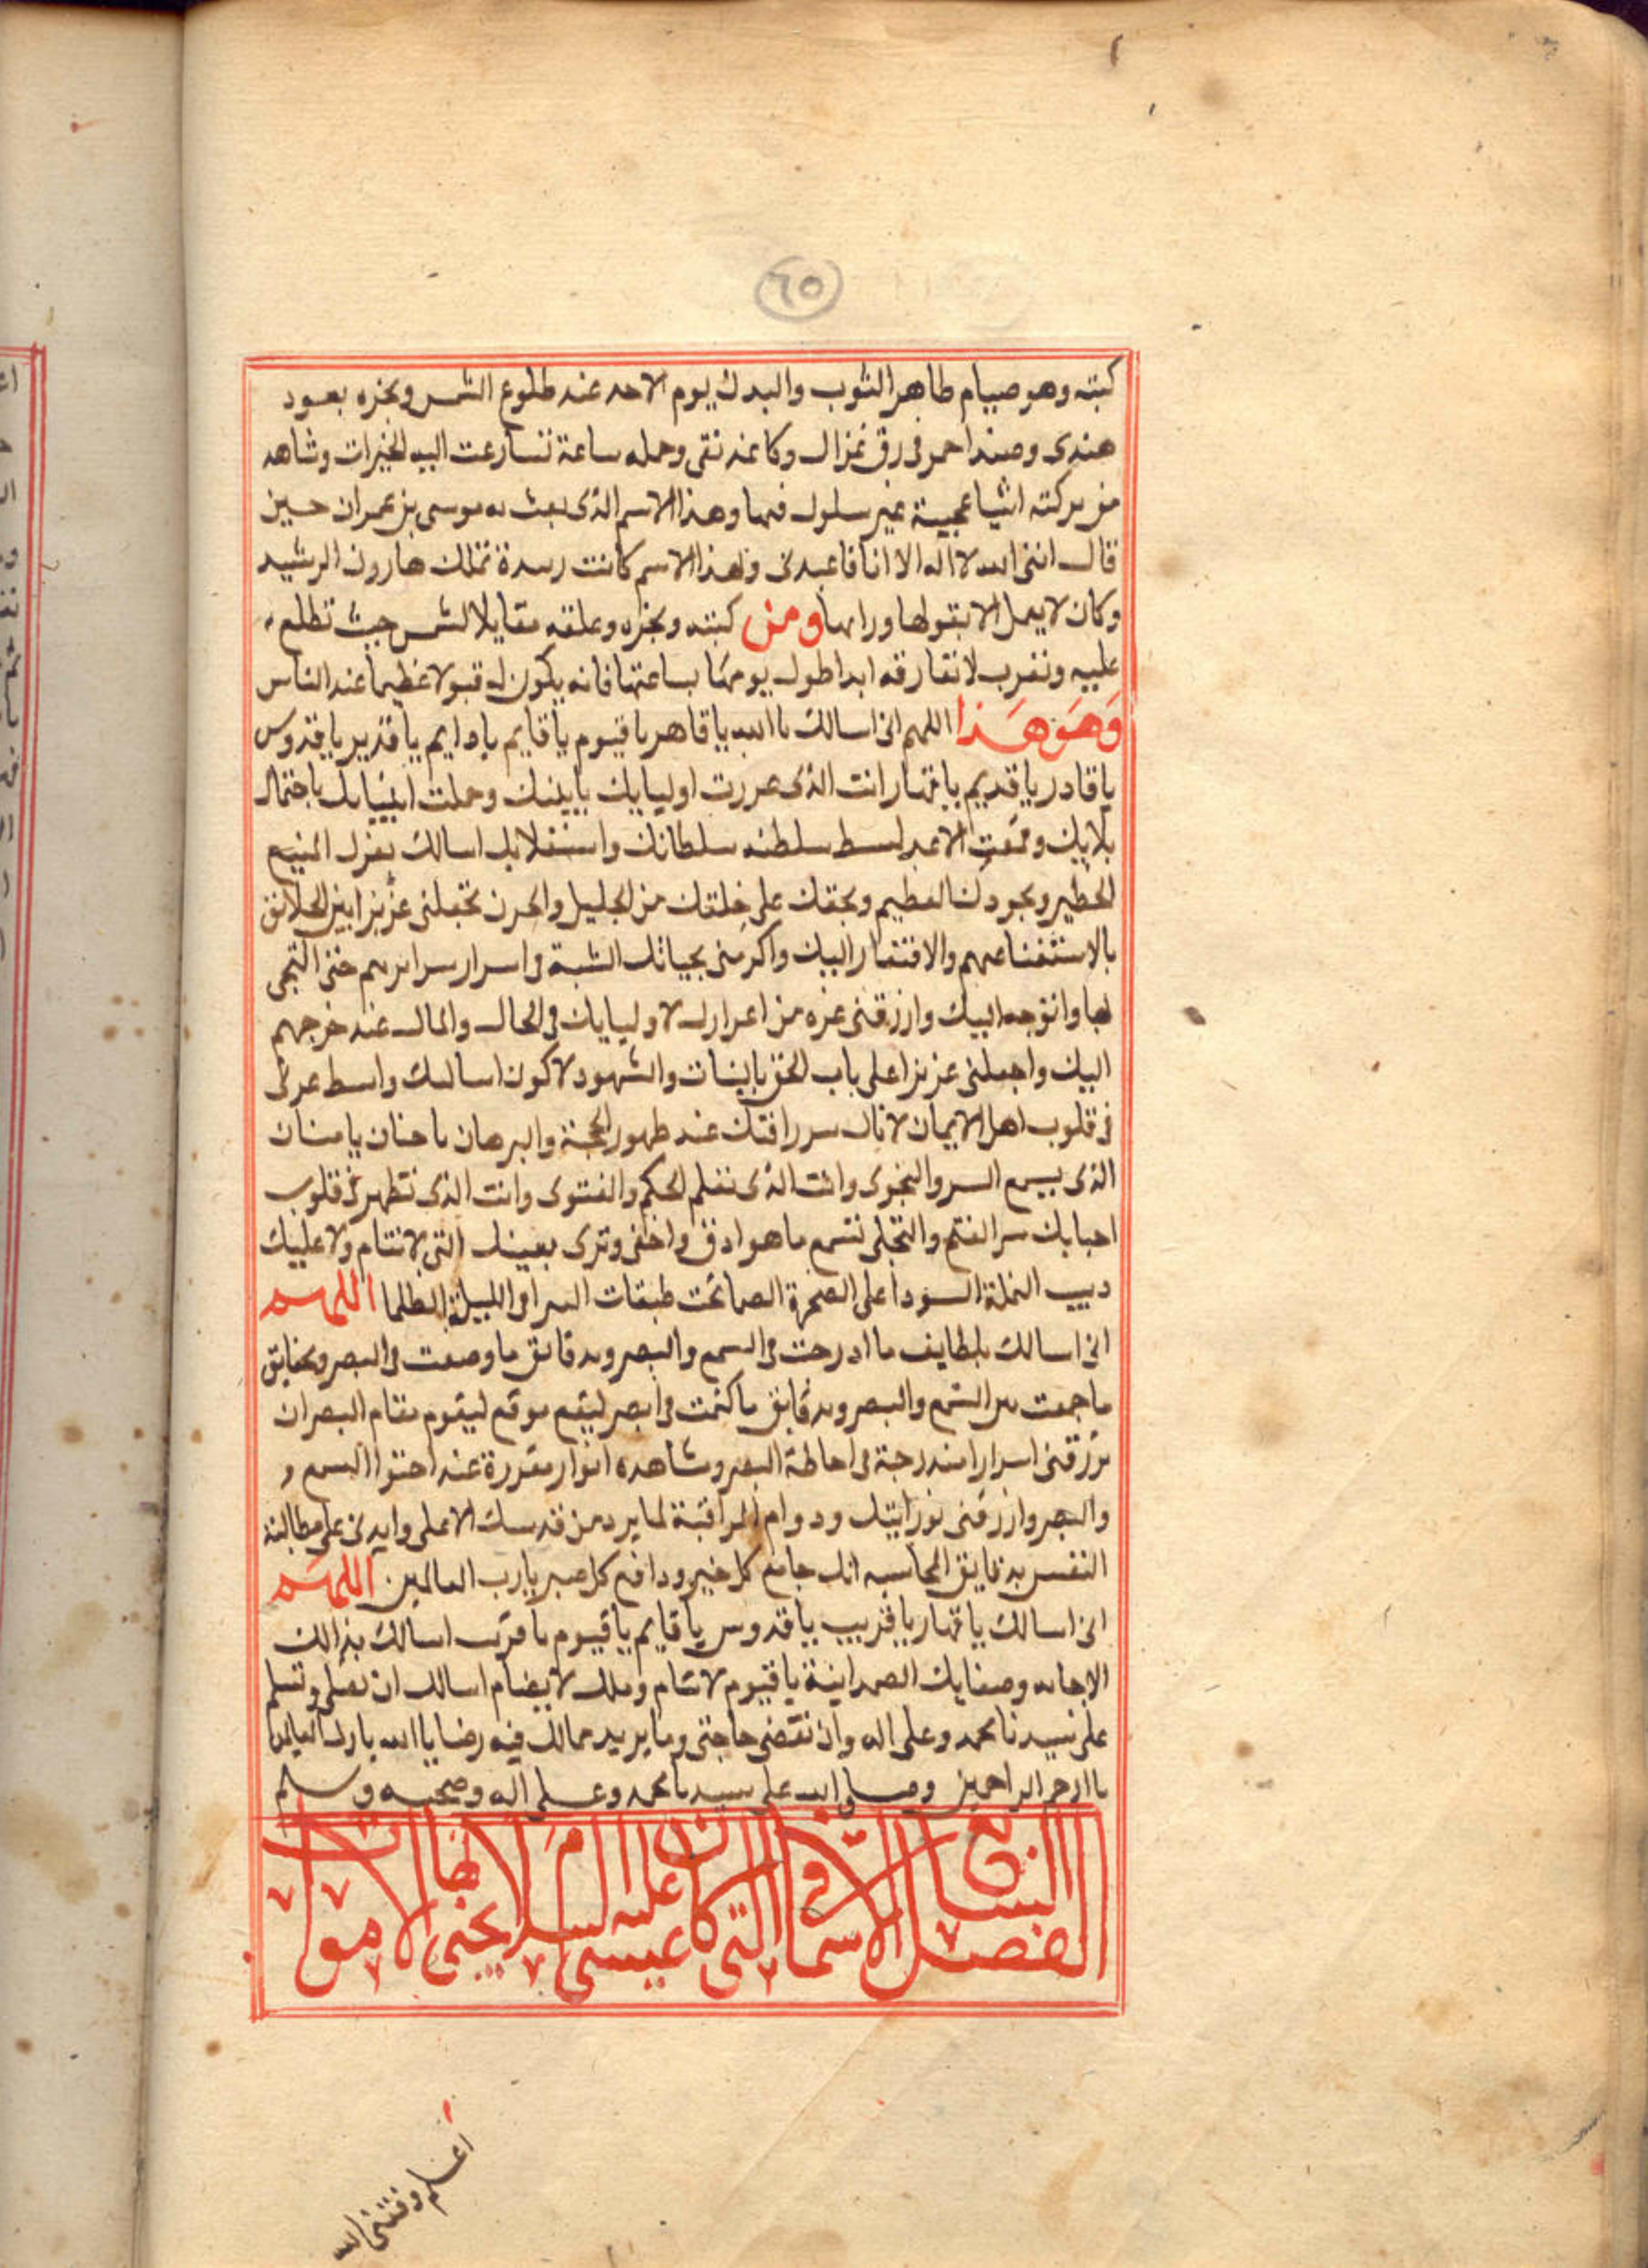 ٦٥
كبته وهو صيام طاهر الثوب والبدن يوم الاحد عند طلوع الشمس وبخره بعود
هندى وصندل احمر فى رق غزال وكاغد نقى وحمله ساعة تسارعت اليه الخيرات وشاهد
من بركته اشيا عجيبة غير سلوك فيها وهذا الاسم الذى بعث به موسى بن عمران حين
قال اننى الله لا اله الا انا فاعبدنى وبهذا الاسم كانت تملك هارون الرشيد
وكان لا يعمل الا بقولها ومن كبته وبخره وعلقه مقابلا لشمس حيث تطلع
عليه وتغرب لا تفارقه ابدا طول يومها بساعتها فانه يكون له قبولا عظيما عند الناس
وهو هذا اللهم انى اسالك يا الله يا قاهر يا قيوم يا قايم يا دايم يا قدير يا قدوس
يا قادر يا قديم يا قهار انت الذى عززت اوليايك وحملت انبيايك باحتمال
بلايك وقمعت سلطنه سلطانك اسالك بعزك المنيع
الخطير وبجودك العظيم وبحقك على خلقك من الجليل تجعلنى عزيزا بين الخلايق
بالاستغنا عنهم والافتقار اليك واكرمنى اسرار سرايرهم حتى التجى
لها واتوجه اليك وارزقنى عزه من لاوليايك فى الحال والمال عند خرجهم
اليك واجعلنى عزيزا على باب الحق والشهود لاكون
فى قلوب اهل الايمان سر رافتك عند ظهور الحجة والبرهان يا حنان يا منان
الذى يسمع السر والنجوى وانت الذى الحكم والفتوى وانت الذى تظهر فى قلوب
احبابك سر الفتح والتجلى تسمع ما هو ادق واخفى وترى بعينك التى لا تنام ولا عليك
دبيب النملة السودا على الصخرة الصما تحت طبقات الليلة الظلما اللهم
انى اسالك بلطايف ما ادرجت فى السمع والبصر وبدقايق ما وضعت فى البصر وبحقايق
ما جمعت بين السمع والبصر وبدقايق ما كتمت فى البصر ليقع موقع ليقوم مقام البصر ان
ترزقنى اسرارا مندرجة فى احاطة البصر ومشاهده انوار مقررة عند احتوا السمع و
والبصر وارزقنى ودوام المراقبة لما يرد من قدسك الاعلى وايدنى على مطالبة
النفس بدقايق المحاسبه انك جامع كل خير ودافع كل يا رب العالمين اللهم
انى اسالك يا قهار يا قريب يا قدوس يا قايم يا قيوم اسالك بذالك
وصفايك الصمدانية يا قيوم لا تنام وملك لا يضام اسالك ان تصلى وتسلم
على سيدنا محمد وعلى اله وان تقضى حاجتى وما يريد مما لك فيه رضا يا الله يا رب العالمين
يا ارحم الراحمين وصلى الله على سيدنا محمد وعلى اله وصحبه وسلم
الفصل السابع فى الاسما التى كان عيسى عليه السلام يحيى بها الاموات
اعلم وفقنى الله